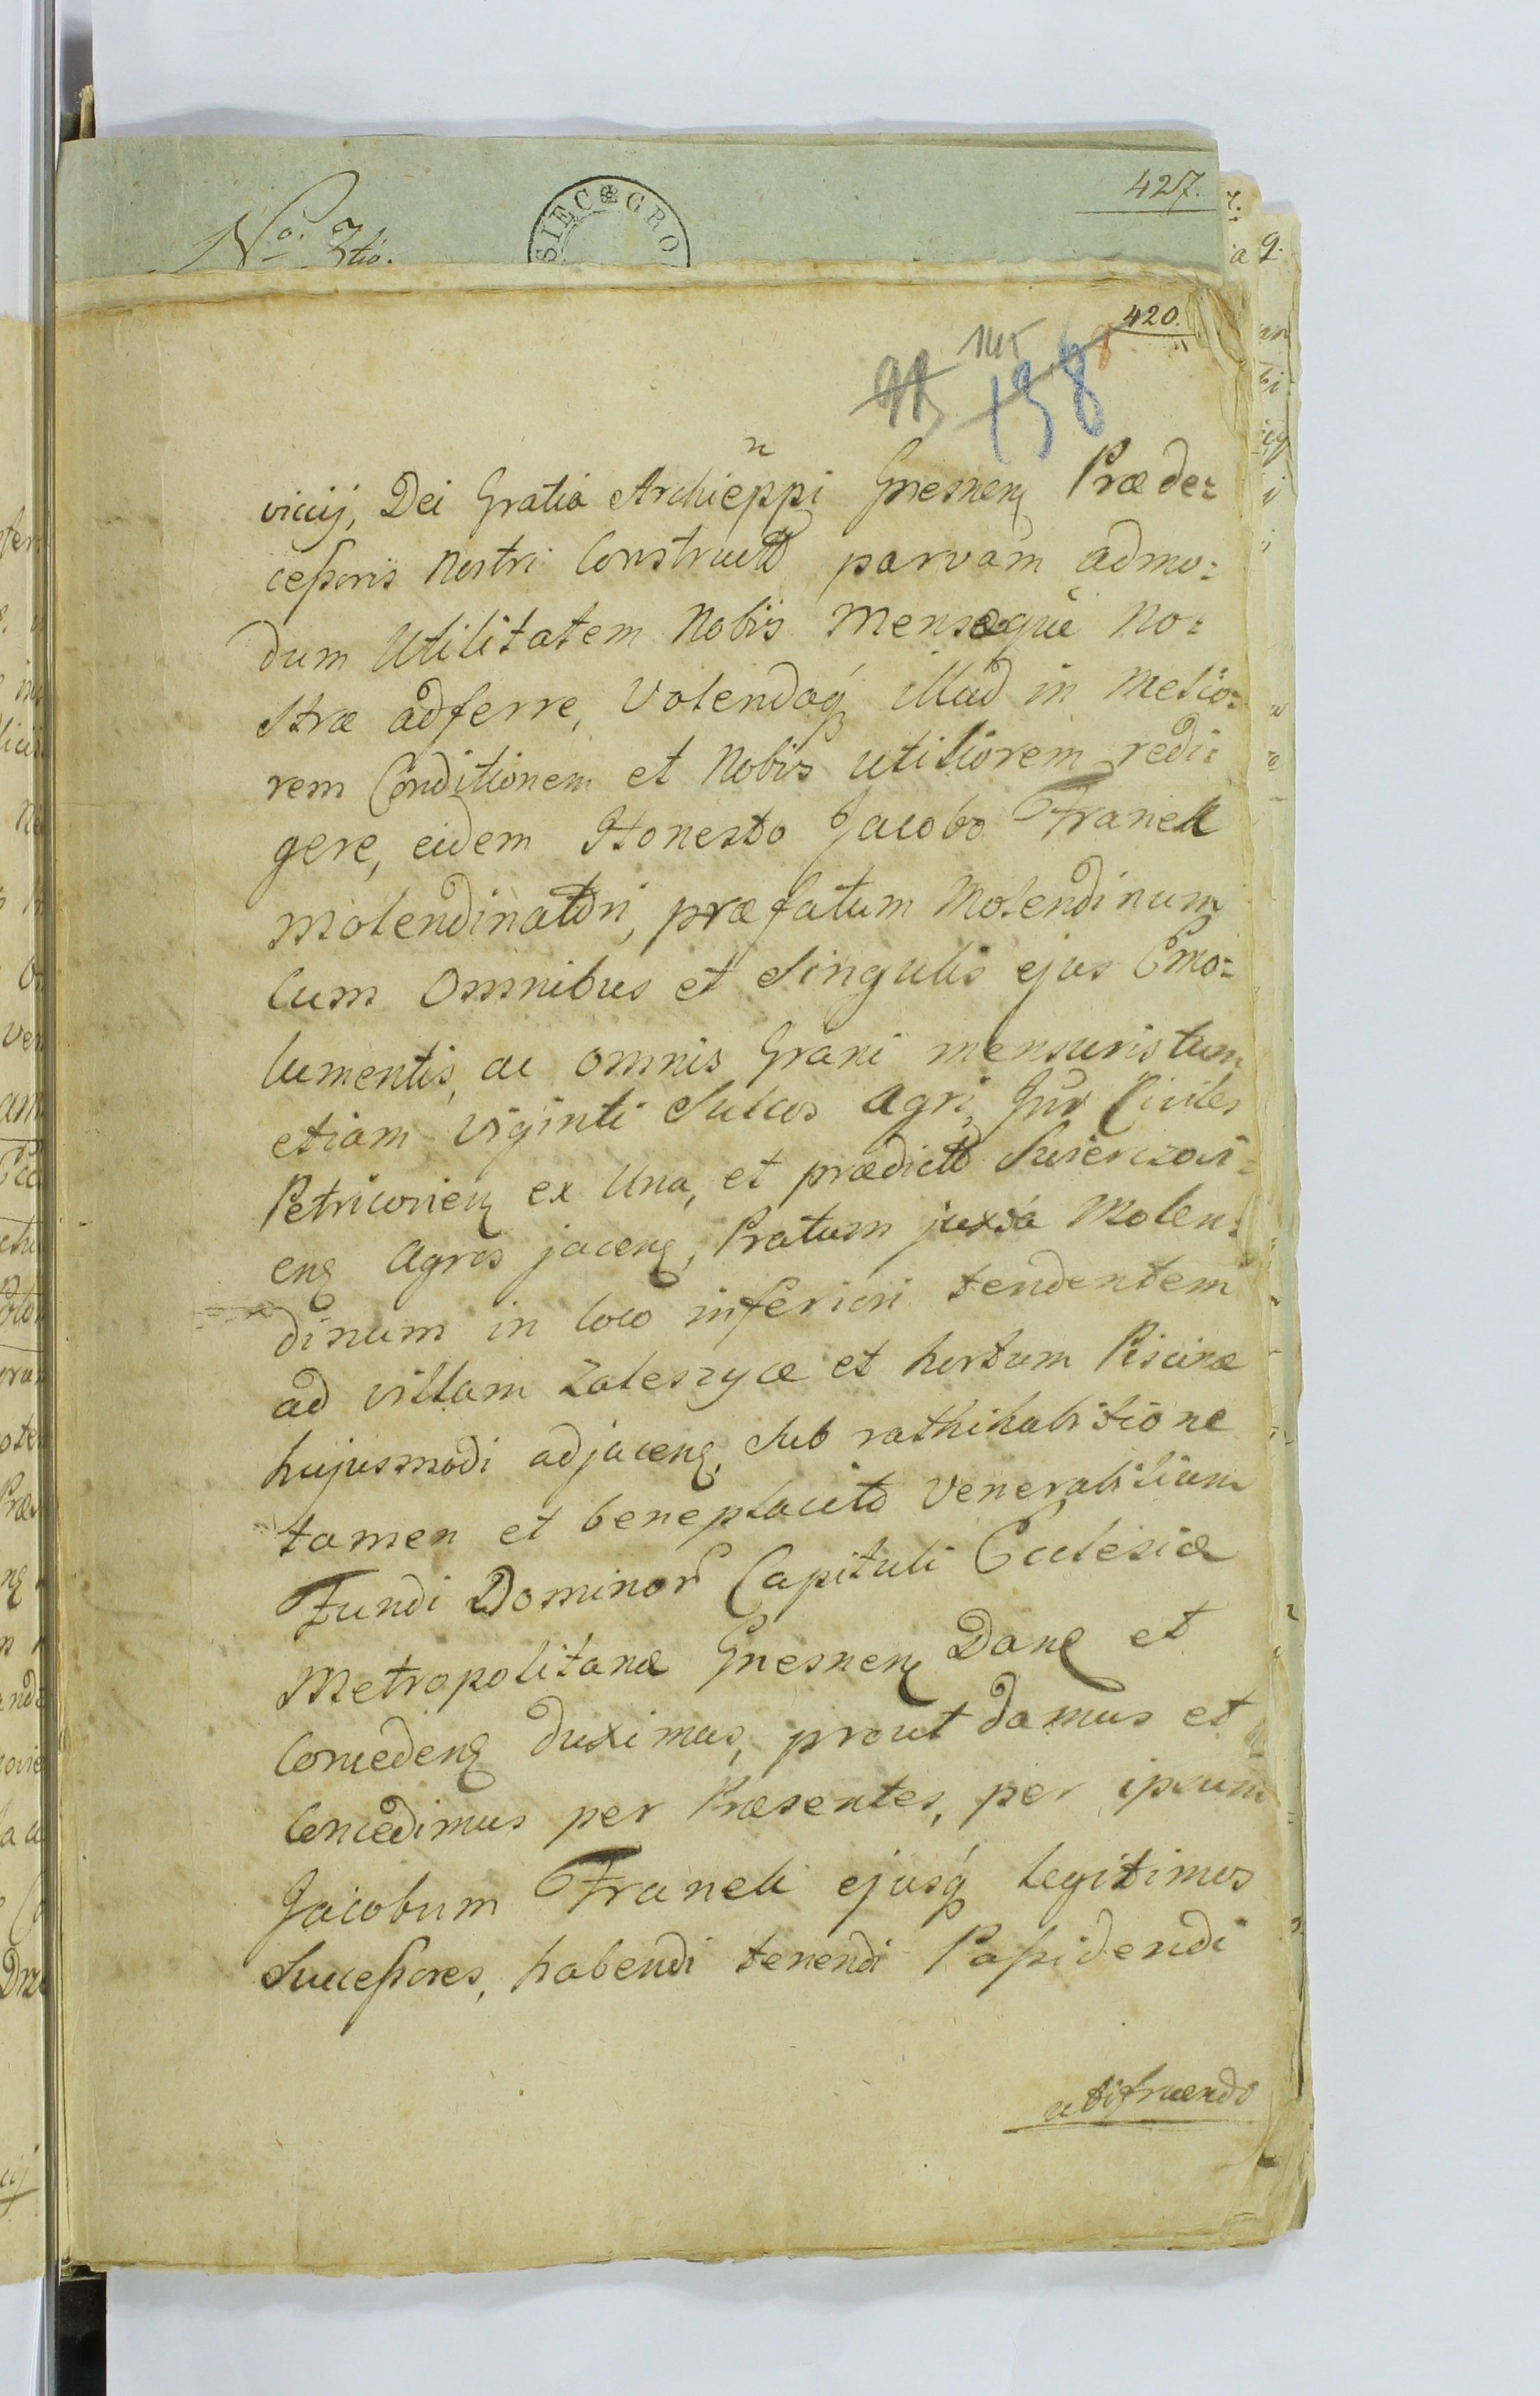 427.
No. 3tio.
SIEC GRO
420.
145
198
8
vicij, Dei Gratia Archieppi Gnesnen Præde:
ceßoris Nostri Constructo parvam admo:
dum Utilitatem Nobis Mensæque No:
stræ adferre, Volendoq illud in Melio:
rem Conditionem et Nobis utiliorem redi:
gere, eidem Honesto Jacobo Franek
Molendinatori, præfatum Molendinum
Cum Omnibus et Singulis ejus Emo:
lumentis, ac omnis Grani mensuris tum
etiam Viginti Sulcos Agri, Civiles
Petricovien ex Una, et prædicto
en Agros jacen, Pratum juxta Molen:
dinum in loco inferiori tendentem
ad Villam Zaleszyce et hortum Piscinæ
hujusmodi adjacen, Sub rathihabitione
tamen et beneplacito Venerabilium
Fundi Dominor Capituli Ecclesiæ
Metropolitanæ Gnesnen Dan et
Conceden duximus, prout damus et
Concedimus per Præsentes, per ipsum
Jacobum Franek ejusq legitimos
Succeßores, habendi tenendi Poßidendi
utifruendi